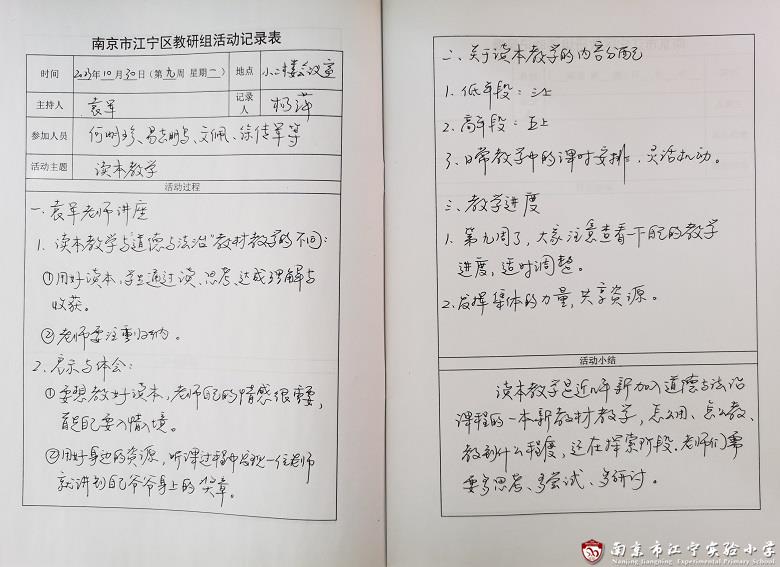 南京市江宁区教研组活动记录表
时间 2023年10月30日(第九周 星期一) 地点 小二楼会议室
主持人 袁军 记录人 杨萍
参加人员 何明珍、易志明、文佩、徐传军等
活动主题 读本教学
活动过程
一、袁军老师讲座
1. 读本教学与"道德与法治"教材教学的不同:
①用好读本,学生通过读、思考、达成理解与
收获。
②老师要注重归纳。
2. 启示与体会:
①要想教好读本,老师自己的情感很重要,
首先自己要入情入境。
②用好身边的资源,听课过程中发现一位老师
就讲到自己爷爷身上的奖章。
二、关于读本教学的内容分配
1. 低年段:三上
2. 高年段:五上
3. 日常教学中的课时安排,灵活机动。
三、教学进度
1. 第九周了,大家注意查看一下自己的教学
进度,适时调整。
2. 发挥集体的力量,共享资源。
活动小结
读本教学是近几年新加入道德与法治
课程的一本新教材教学,怎么用、怎么教、
教到什么程度,还在探索阶段.老师们需
要多思考、多尝试、多研讨。
南京市江宁实验小学
Nanjing Jiangning Experimental Primary School